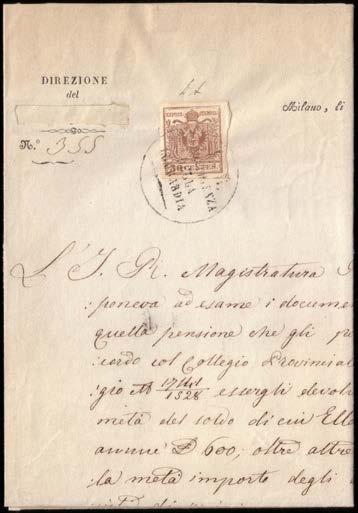 DIREZIONE
del
Milano, li
N.º 355
L'I. R. Magistratura
poneva ad esame i docume
quella pensione che gli
cordo col Collegio Provincial
gio 1528 essergli devol
metà del soldo di cui Ell
annue 600; oltre altre
la metà importo degli